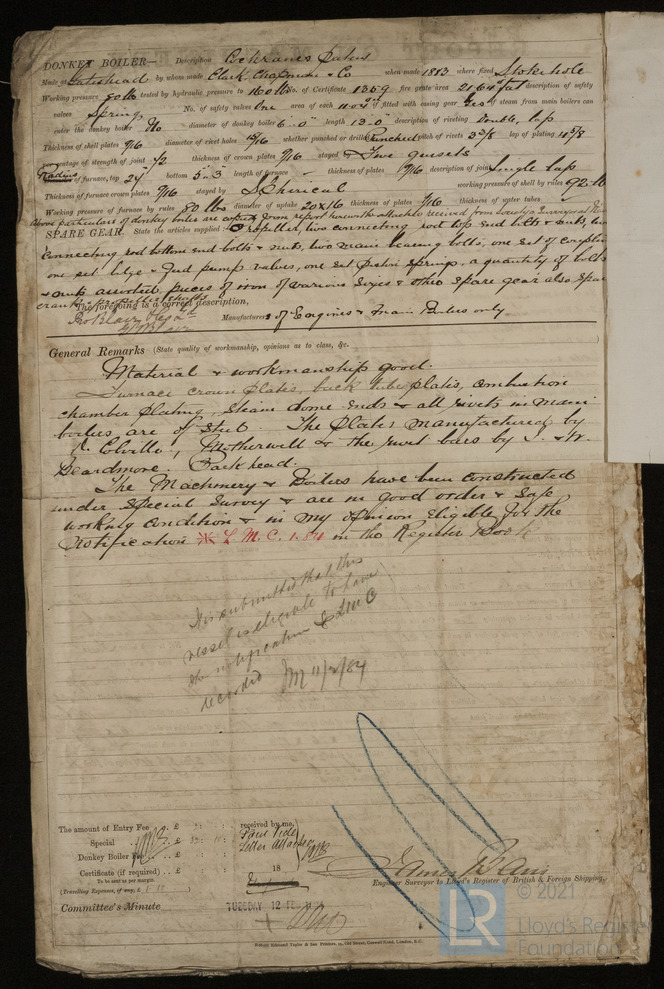 DONKEY BOILER— Description Cochranes Patent
Made at Gateshead by whom made Clark, Chapman & Co when made 1883 where fixed Stokehole
Working pressure 80 lbs tested by hydraulic pressure to 160 lbs No. of Certificate 1359 fire grate area 21.64 description of safety
valves Spring No. of safety valves One area of each 11.04 if fitted with easing gear Yes if steam from main boilers can
enter the donkey boiler No diameter of donkey boiler 6'-0" length 13'-0" description of riveting Double, lap
Thickness of shell plates 7/16 diameter of rivet holes 13/16 whether punched or drilled Punched pitch of rivets lap of plating
percentage of strength of joint thickness of crown plates 9/16 stayed by Five gussets
Radius of furnace, top bottom 5'-3 length of furnace thickness of plates description of joint Single lap
Thickness of furnace crown plates 9/16 stayed by Spherical working pressure of shell by rules 92 lb
Working pressure of furnace by rules 80 lbs diameter of uptake 20 x 16 thickness of plates 7/16 thickness of water tubes
Above particulars of donkey boiler are copied from report herewith attached received from Society's Surveyor at
SPARE GEAR. State the articles supplied:— Propeller, two connecting rod top end bolts & nuts, two
connecting rod bottom end bolts & nuts, two main bearing bolts, one set of coupling
one set bilge & feed pump valves, one set piston springs, a quantity of bolts
& nuts assorted pieces of iron of various sizes & other spare gear also spare
crank & propeller shafts
The foregoing is a correct description,
Manufacturers of Engines & Main Boilers only
General Remarks (State quality of workmanship, opinions as to class, &c.
Material & workmanship good.
Furnace crown plates, back tube plates, combustion
chamber plating, steam dome ends & all rivets in main
boilers are of steel. The plates manufactured by
Colville, Motherwell & the rivet bars by
Beardmore. Parkhead.
The Machinery & Boilers have been constructed
under Special Survey & are in good order & safe
working condition & in my opinion eligible for the
Notification L.M.C. 1.84 in the Register Book
It is submitted that this
vessel is eligible to have
the notification LMC
recorded 11/2/84
The amount of Entry Fee .. £ received by me,
Special .. £
Donkey Boiler Fee .. £
Certificate (if required) .. £ 18
To be sent as per margin.
(Travelling Expenses, if any, £
Engineer Surveyor to Lloyd's Register of British & Foreign Shipping.
Committee's Minute TUESDAY 12 FEB
© 2021
LR
Lloyd's Register
Foundation